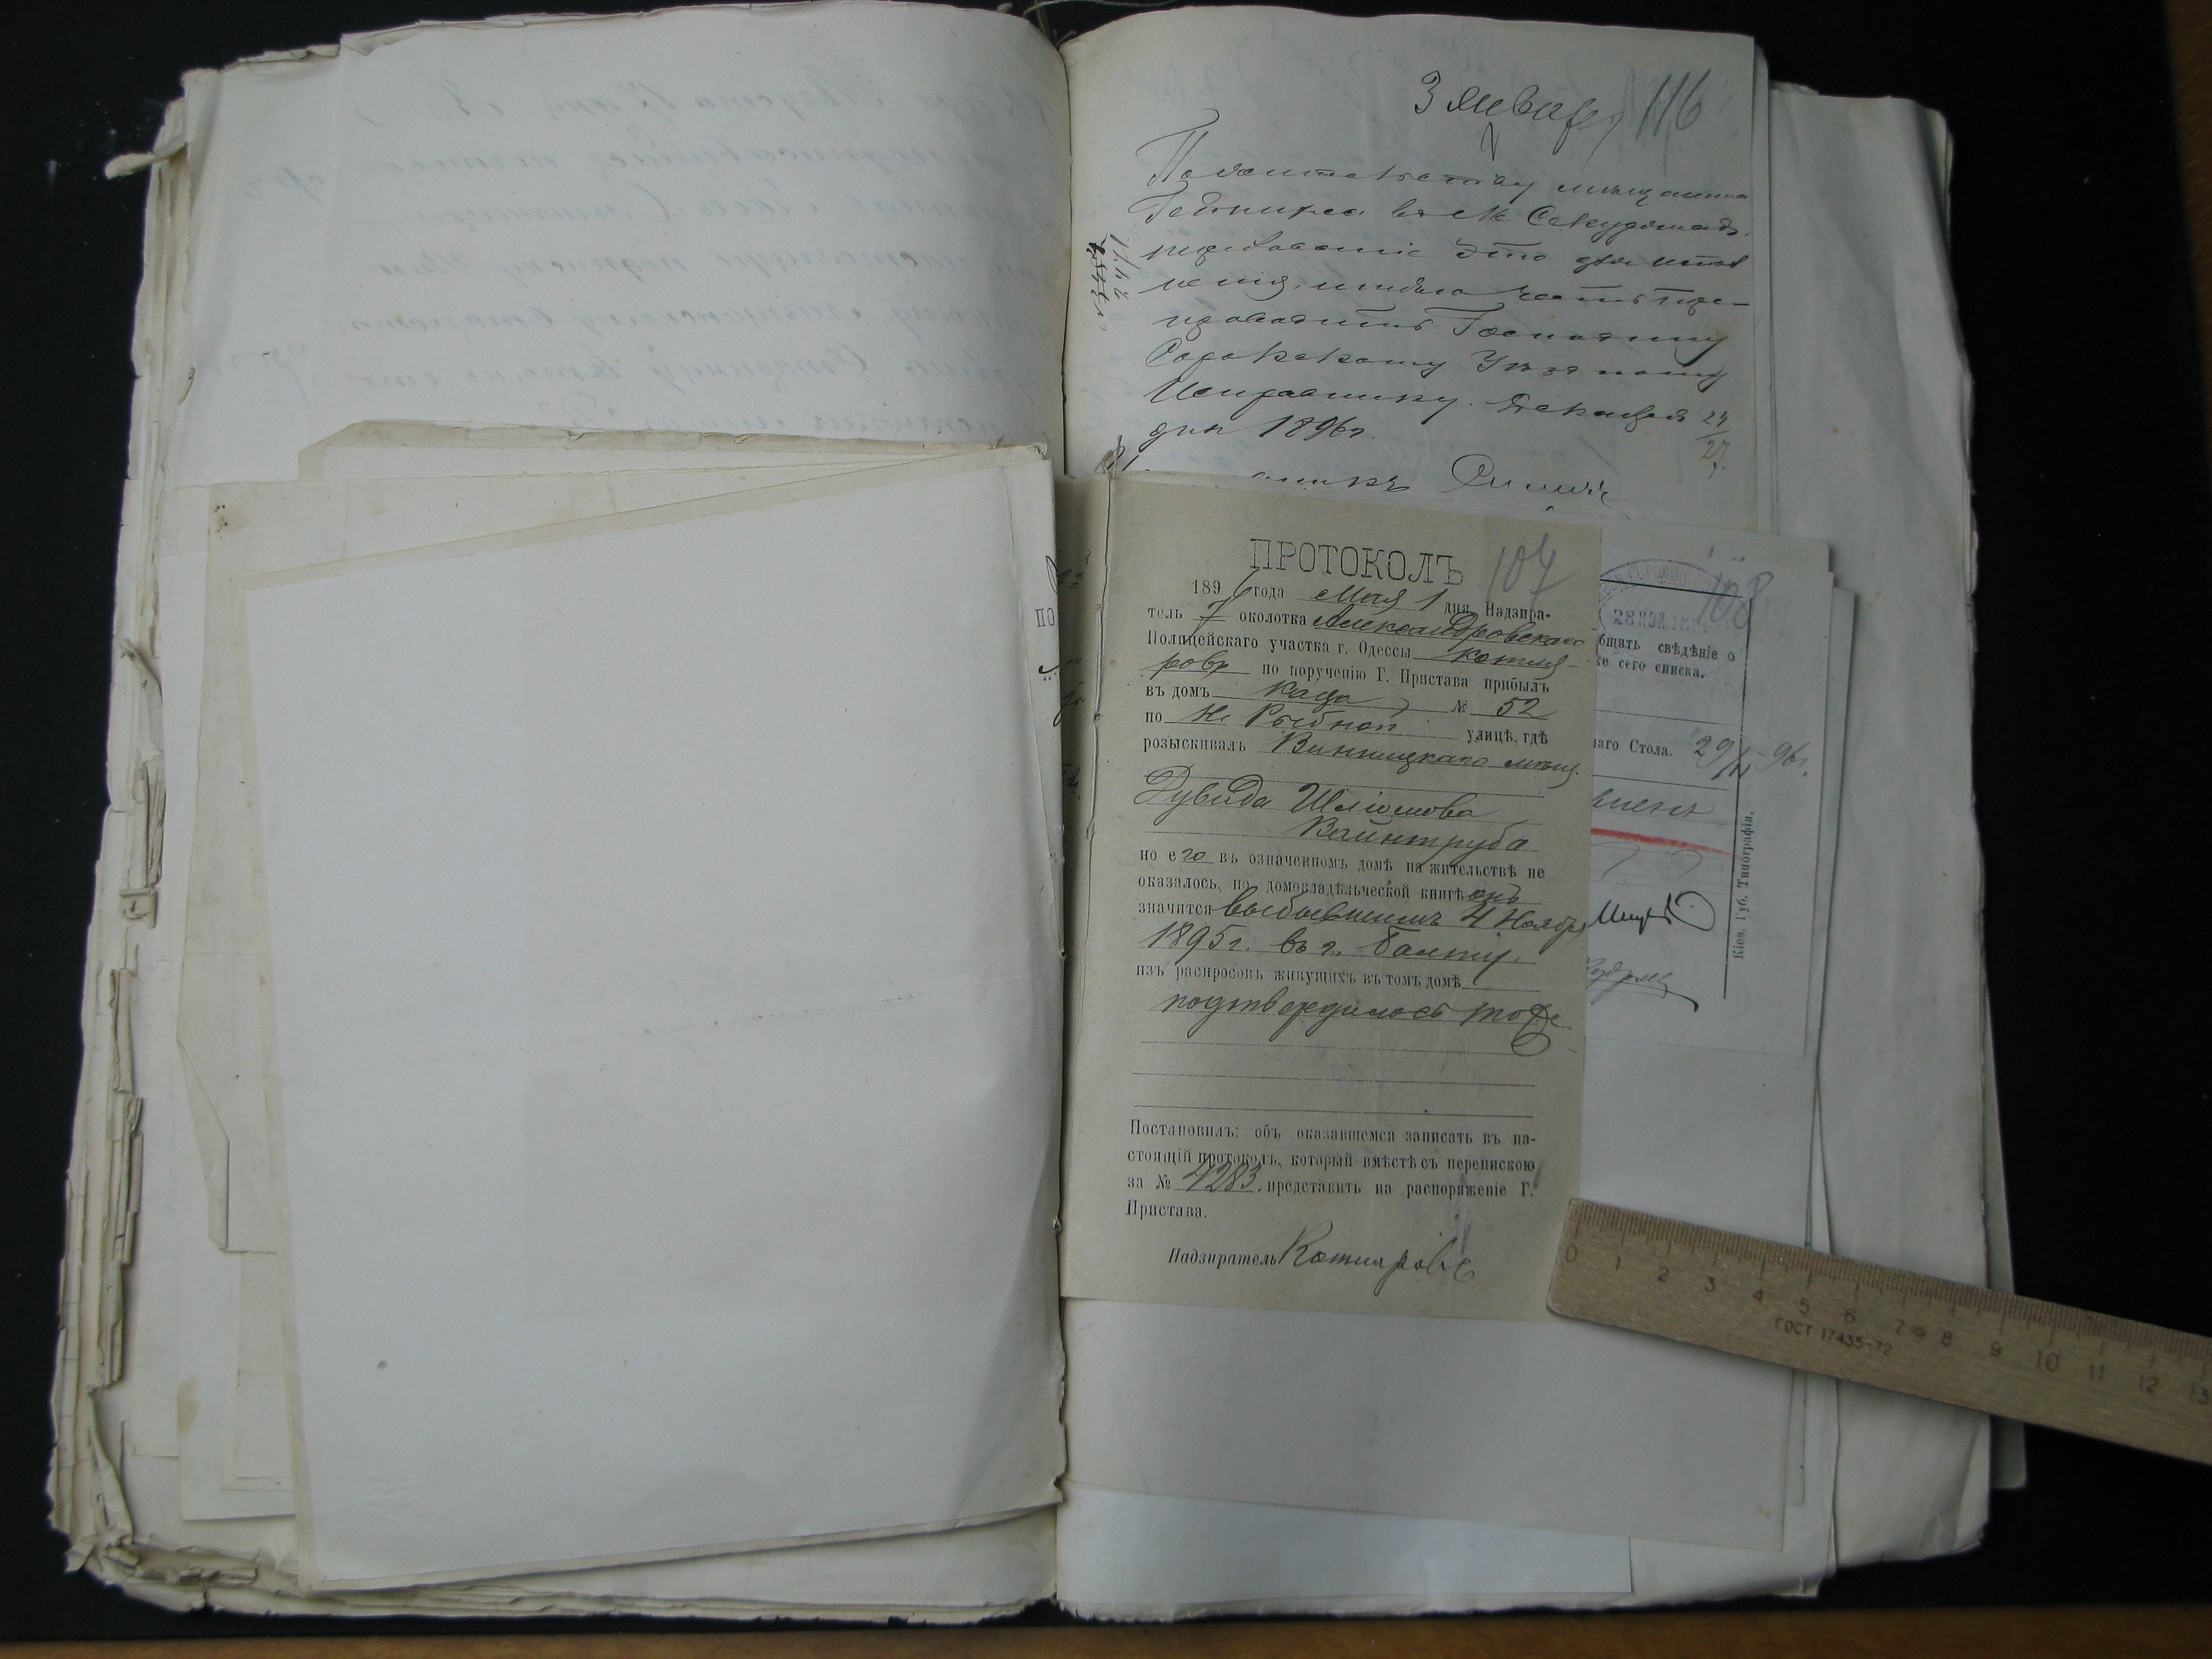 3 Января 116
По жительству мещанина
въ м.
это для испол
нения, имею честь пре-
проводить Господину
Сорокскому Уездному
Исправнику. Декабря 24
27
дня 1896 г.
ПРОТОКОЛЪ 107
1896 года Мая 1 дня Надзира-
тель 7 околотка Александровскаго
Полицейскаго участка г. Одессы Котля-
ровъ по порученію Г. Пристава прибылъ
въ домъ Каца № 52
по Н Рыбной улицѣ, гдѣ
розыскивалъ Винницкаго мѣщ.
Дувида Шліомова
Вайнтруба
но его въ означенномъ домѣ на жительствѣ не
оказалось, по домовладѣльческой книгѣ онъ
значится выбывшимъ 4 Ноября
1895 г. въ г. Балту.
изъ распросовъ живущихъ въ томъ домѣ
подтвердилось тоже
Постановилъ: объ оказавшемся записать въ на-
стоящій протоколъ, который вмѣстѣ съ перепискою
за № 4283. представить на распоряженіе Г.
Пристава.
Надзиратель Котляровъ
108
28 НОЯ.
бщить свѣдѣніе о
же сего списка.
наго Стола. 29/XI-96 г.
Кіев. Губ. Типографія.
0 1 2 3 4 5 6 7 8 9 10 11 12 13
ГОСТ 17435-72